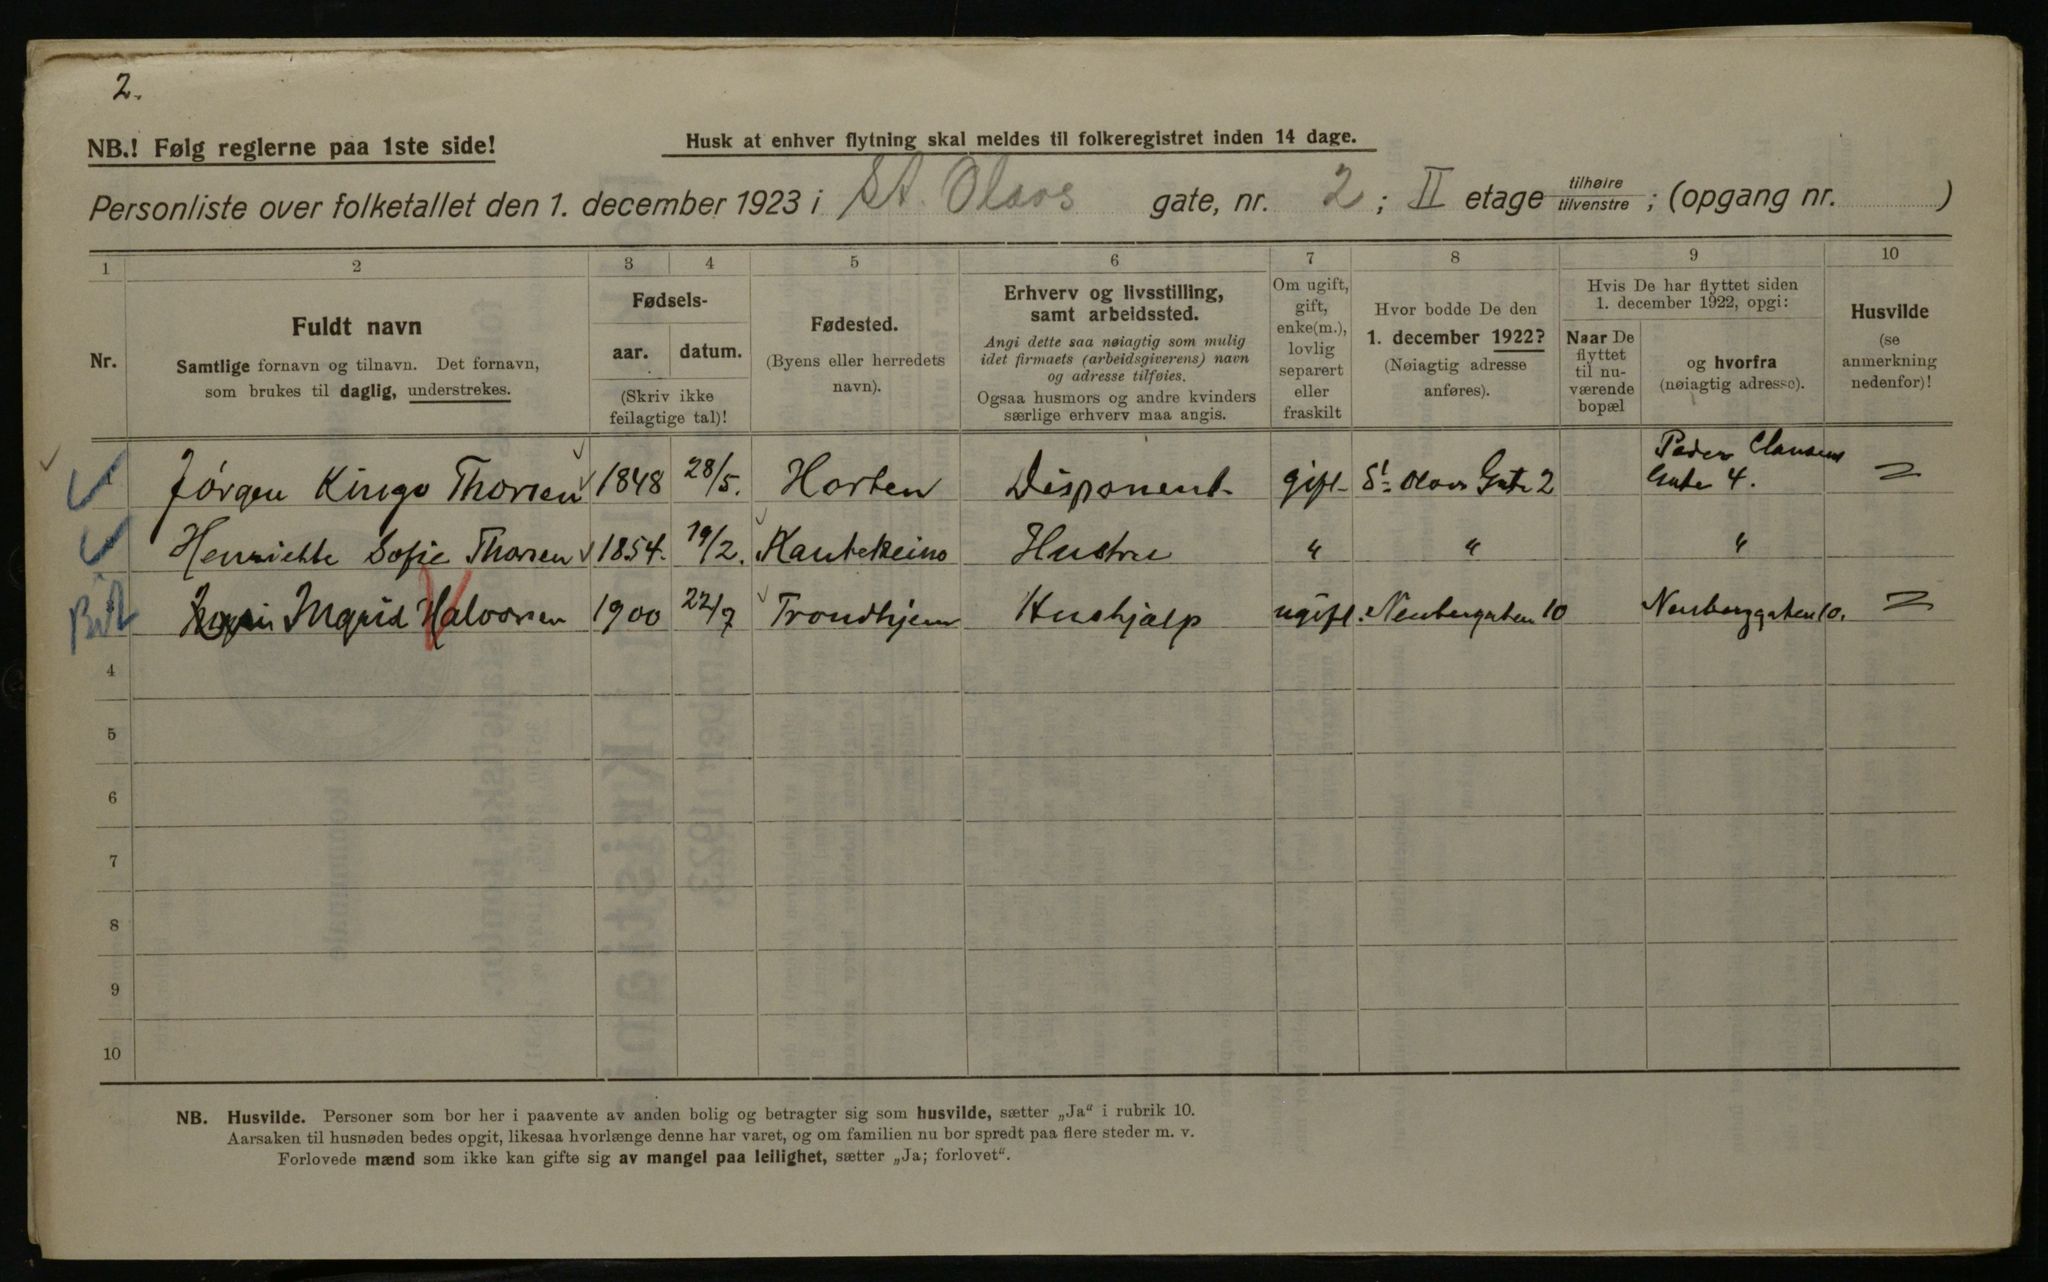 2.
NB.! Følg reglerne paa 1ste side!
Husk at enhver flytning skal meldes til folkeregistret inden 14 dage.
Personliste over folketallet den 1. december 1923 i St. Olavs gate, nr. 2 ; II etage tilhøire tilvenstre ; (opgang nr. )
1 2 3 4 5 6 7 8 9 10
Nr.
Fuldt navn
Samtlige fornavn og tilnavn. Det fornavn,
som brukes til daglig, understrekes.
Fødsels-
aar. datum.
(Skriv ikke
feilagtige tal)!
Fødested.
(Byens eller herredets
navn).
Erhverv og livsstilling,
samt arbeidssted.
Angi dette saa nøiagtig som mulig
idet firmaets (arbeidsgiverens) navn
og adresse tilføies.
Ogsaa husmors og andre kvinders
særlige erhverv maa angis.
Om ugift,
gift,
enke(m.),
lovlig
separert
eller
fraskilt
Hvor bodde De den
1. december 1922?
(Nøiagtig adresse
anføres).
Hvis De har flyttet siden
1. december 1922, opgi:
Naar De
flyttet
til nu-
værende
bopæl
og hvorfra
(nøiagtig adresse).
Husvilde
(se
anmerkning
nedenfor)!
Jørgen Kingo Thorsen 1848 28/5. Horten Disponent gift St Olavs Gate 2 Peder Clausens
Gate 4.
Henriette Sofie Thorsen 1854. 19/2. Kautokeino Hustru " " "
Ingrid Halvorsen 1900 22/7 Trondhjem Hushjælp ugift. Neubergaten 10 Neuberggaten 10.
4
5
6
7
8
9
10
NB. Husvilde. Personer som bor her i paavente av anden bolig og betragter sig som husvilde, sætter „Ja“ i rubrik 10.
Aarsaken til husnøden bedes opgit, likesaa hvorlænge denne har varet, og om familien nu bor spredt paa flere steder m. v.
Forlovede mænd som ikke kan gifte sig av mangel paa leilighet, sætter „Ja; forlovet“.